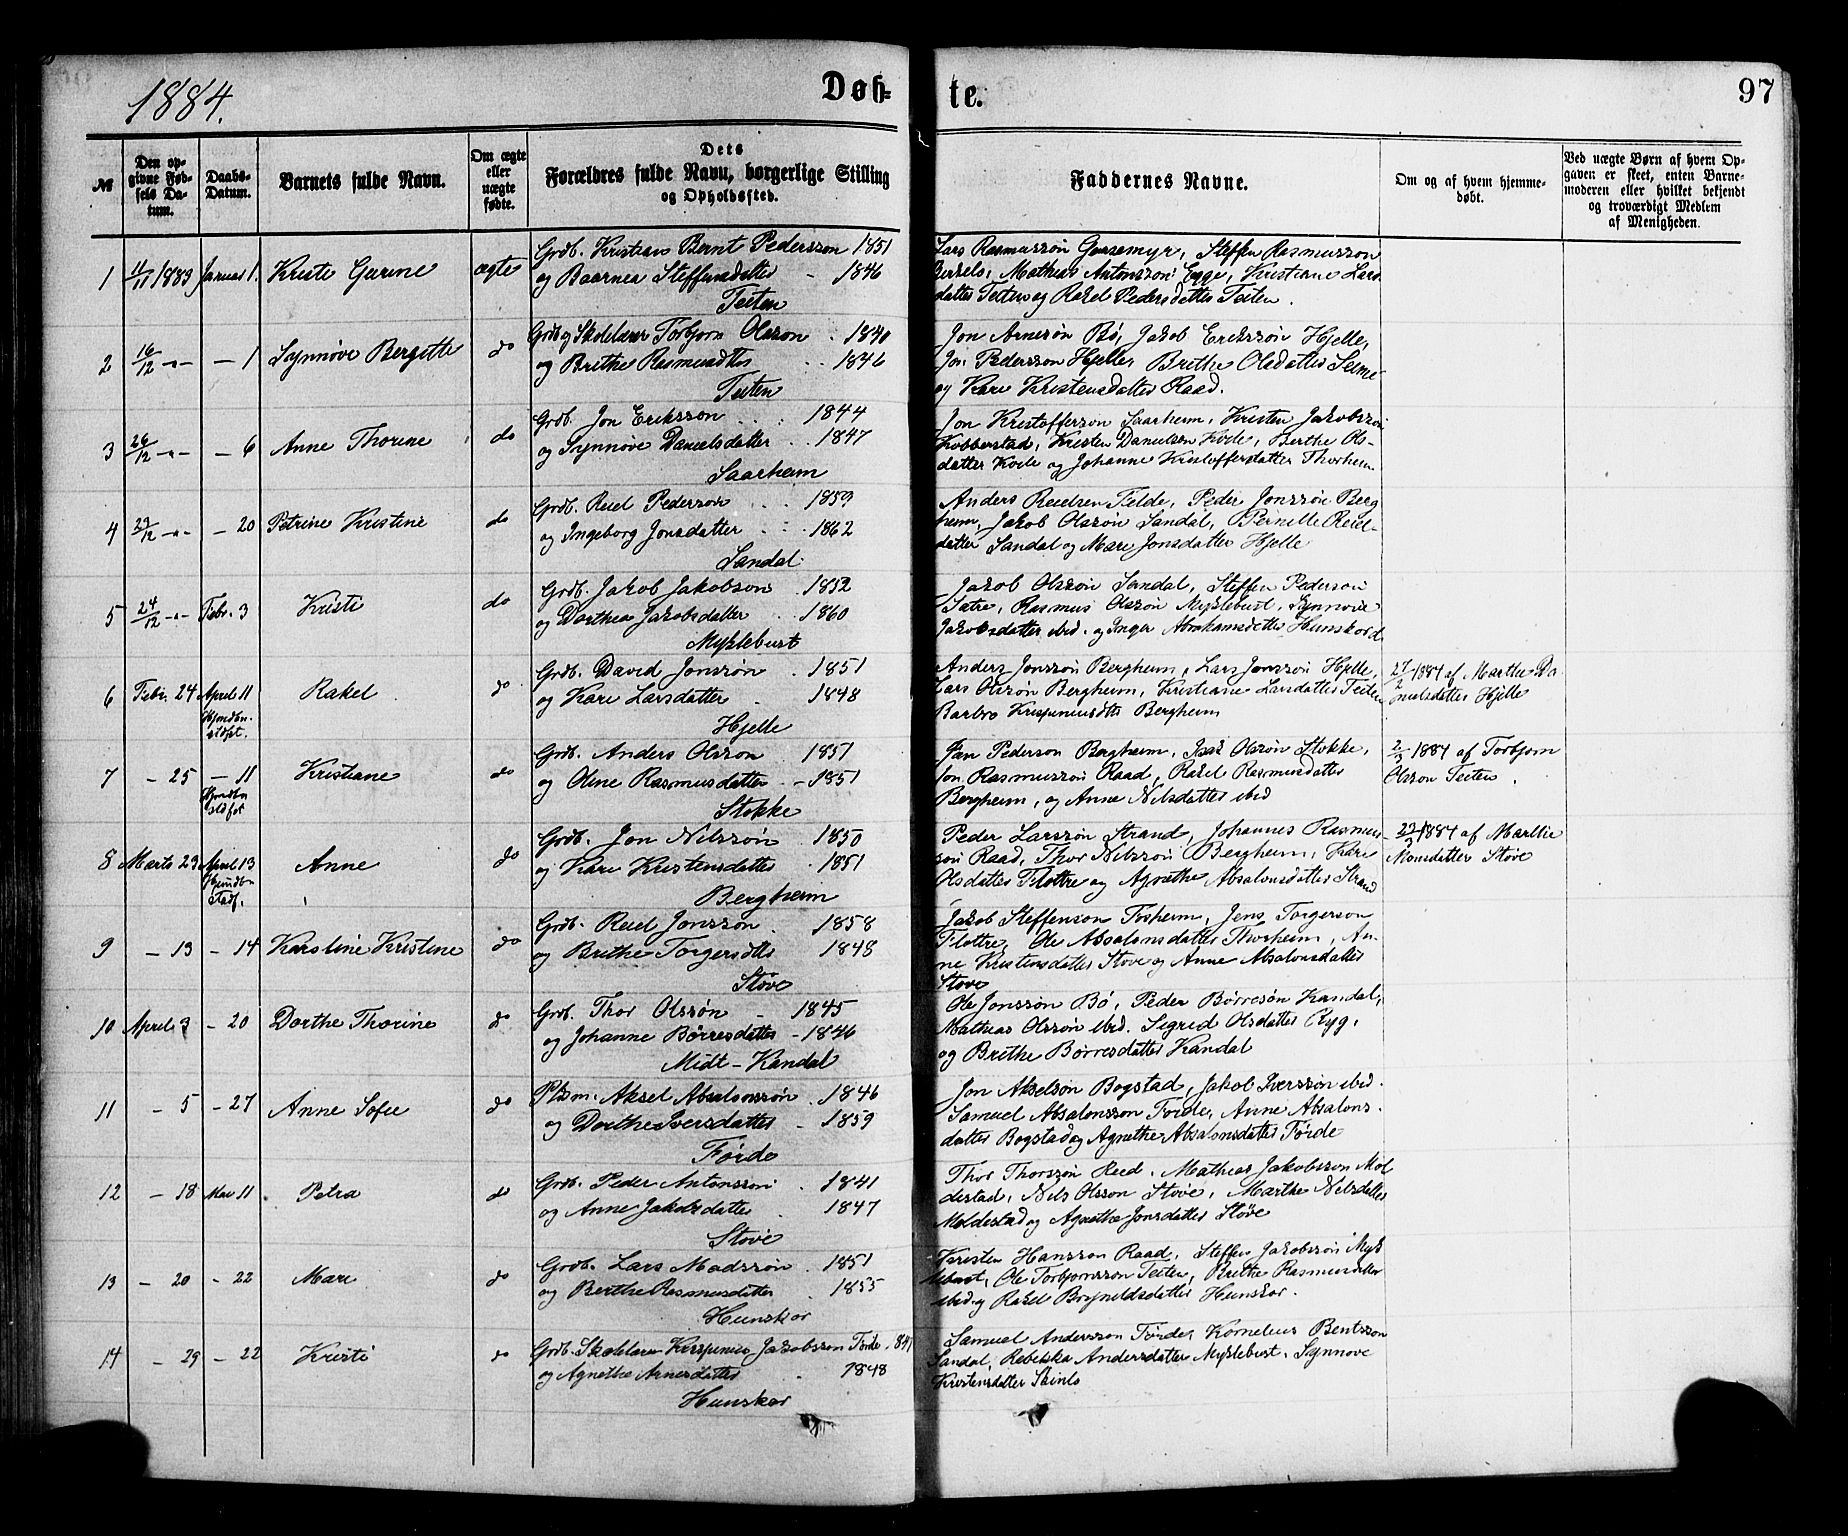 1884.
Døb-
te.
97
№
Den op-
givne Fød-
sels Da-
tum.
Daabs-
Datum.
Barnets fulde Navn.
Om ægte
eller
uægte
fødte.
Dets
Forældres fulde Navn, borgerlige Stilling
og Opholdssted.
Faddernes Navne.
Om og af hvem hjemme-
døbt.
Ved uægte Børn af hvem Op-
gaven er skeet, enten Barne-
moderen eller hvilket bekjendt
og troværdigt Medlem
af Menigheden.
1 11/11 1883 Januar 1. Kriste Gurine ægte
Grdb. Kristian Bernt Pederssøn 1851
og Steffensdatter - 1846
Teiten
Lars Rasmussøn Steffen Rasmussøn
Mathias Antonssøn Egge, Kristiane Lars
datter Teiten og Rakel Pedersdatter Teiten.
2 16/12 -"- - 1 Synnøve Bergitte do
Grdb og Skolelærer Torbjørn Olsson . 1840
og Brithe Rasmusdtr . . 1846
Teiten
Jon Arnesøn Bø, Jakob Erikssøn Hjelle,
Jon Pedersson Hjelle, Brithe Olsdatter Seime
og Kari Kristensdatter Raad.
3 26/12 -"- - 6 Anne Thorine do
Grdb. Jon Eriksson . . 1844
og Synnøve Danielsdatter . . 1847
Saarheim
Jon Kristofferson Saarheim, Kristen Jakobssøn
Kristen Danielsen Kvile, Berthe Ols-
datter Kvile og Johanne Kristoffersdatter Thorheim
4 22/12 -"- - 20 Petrine Kristine do
Grdb. Reiel Pederson . . 1859
og Ingeborg Jonsdatter - : 1862
Sandal
Anders Reielsen Felde, Peder Jonssøn Berg
heim, Jakob Olssøn Sandal, Pernille Reiel-
datter Sandal og Mari Jonsdatter Hjelle
5 24/12 -"- Febr. 3 Kristi do
Grdb. Jakob Jakobson . 1852
og Dorthea Jakobsdatter . 1860
Myklebust
Jakob Olssøn Sandal, Steffen Pederson
Sætre, Rasmus Olssøn Myklebust, Synnøve
Jakobsdatter ibid. og Inger Abrahamsdatter Hunskord
6 Febr. 24 April 11 Rakel do
stadf.
Grdb. David Jonssøn . 1851
og Kari Larsdatter . 1848
Hjelle
Anders Jonssøn Bergheim, Lars Jonssøn Hjelle,
Lars Olssøn Bergheim, Kristiane Larsdatter Teiten
Barbro Krispiniusdtr Bergheim
27/2 1884 af Marthe Da
nielsdatter Hjelle
7 - 25 - 11 Kristiane do
Grdb. Anders Olsson 1851
og Oline Rasmusdatter - 1851
Stokke
Jan Pederson Bergheim, Isak Olssøn Stokke,
Jon Rasmussøn Raad, Rakel Rasmusdatter
Bergheim, og Anne Nilsdatter ibid
2/3 1884 af Torbjørn
Olsson Teiten.
8 Marts 23 April 13 Anne do
Grdb. Jon Nilssøn . 1850
og Kari Kristensdatter . 1851
Bergheim
Peder Larssøn Strand, Johannes Rasmus-
søn Raad, Thor Nilssøn Bergheim, Kari
Olsdatter Flottre og Agnethe Absalonsdatter Strand
1884 af Marthe
Monsdatter Støve
9 - 13 - 14 Karstine Kristine do
Grdb. Reiel Jonssøn . 1858
og Brithe Torgersdtr 1848
Støve
Jakob Steffenson Fosheim, Jens Torgerson
Flottre, Ole Absalonsdatter Thorheim, An-
ne Kristensdatter Støve og Anne Absalonsdatter
Støve
10 April 3 - 20 Dorthe Thorine do
Grdb. Thor Olssøn - 1845
og Johanne Børresdatter - 1846
Midt-Kandal
Ole Jonssøn Bø, Peder Børresøn Kandal,
Mathias Olssøn ibid. Sigrid Olsdatter Ryg,
og Brithe Børresdatter Kandal
11 - 5 - 27 Anne Sofie do
Plsm. Aksel Absalonssøn . 1846
og Dorthe Iversdatter - 1859
Førde
Jon Akselson Bogstad, Jakob Iverssøn ibid.
Samuel Absalonsson Førde, Anne Absalons-
datter Bogstad og Agnethe Absalonsdatter Førde
12 - 18 Mai 11 Petra do
Grdb. Peder Antonsson . 1841
og Anne Jakobsdatter . 1847
Støve
Thor Thorssøn Reed, Mathias Jakobsson Mol
destad, Nils Olsson Støve, Marthe Nilsdatter
Moldestad og Agnethe Jonsdatter Støve
13 - 20 - 22 Mari do
Grdb. Lars Madssøn . 1851
og Berthe Rasmusdatter . 1855
Hunskor
Kristen Hansson Raad, Steffen Jakobssøn Myk
lebust, Ole Torbjørnsson Teiten, Brithe Rasmusdatter
ibid og Rakel Brynildsdatter Hunskor.
14 - 29 - 22 Kristi do
Grdb. Skolelærer Krispinus Jakobsson Førde . 1841
og Agnethe Arnesdatter . 1848
Hunskor
Samuel Andersson Førde, Kornelius Bentsson
Sandal, Rebekka Andersdatter Myklebust, Synnøve
Kristensdatter